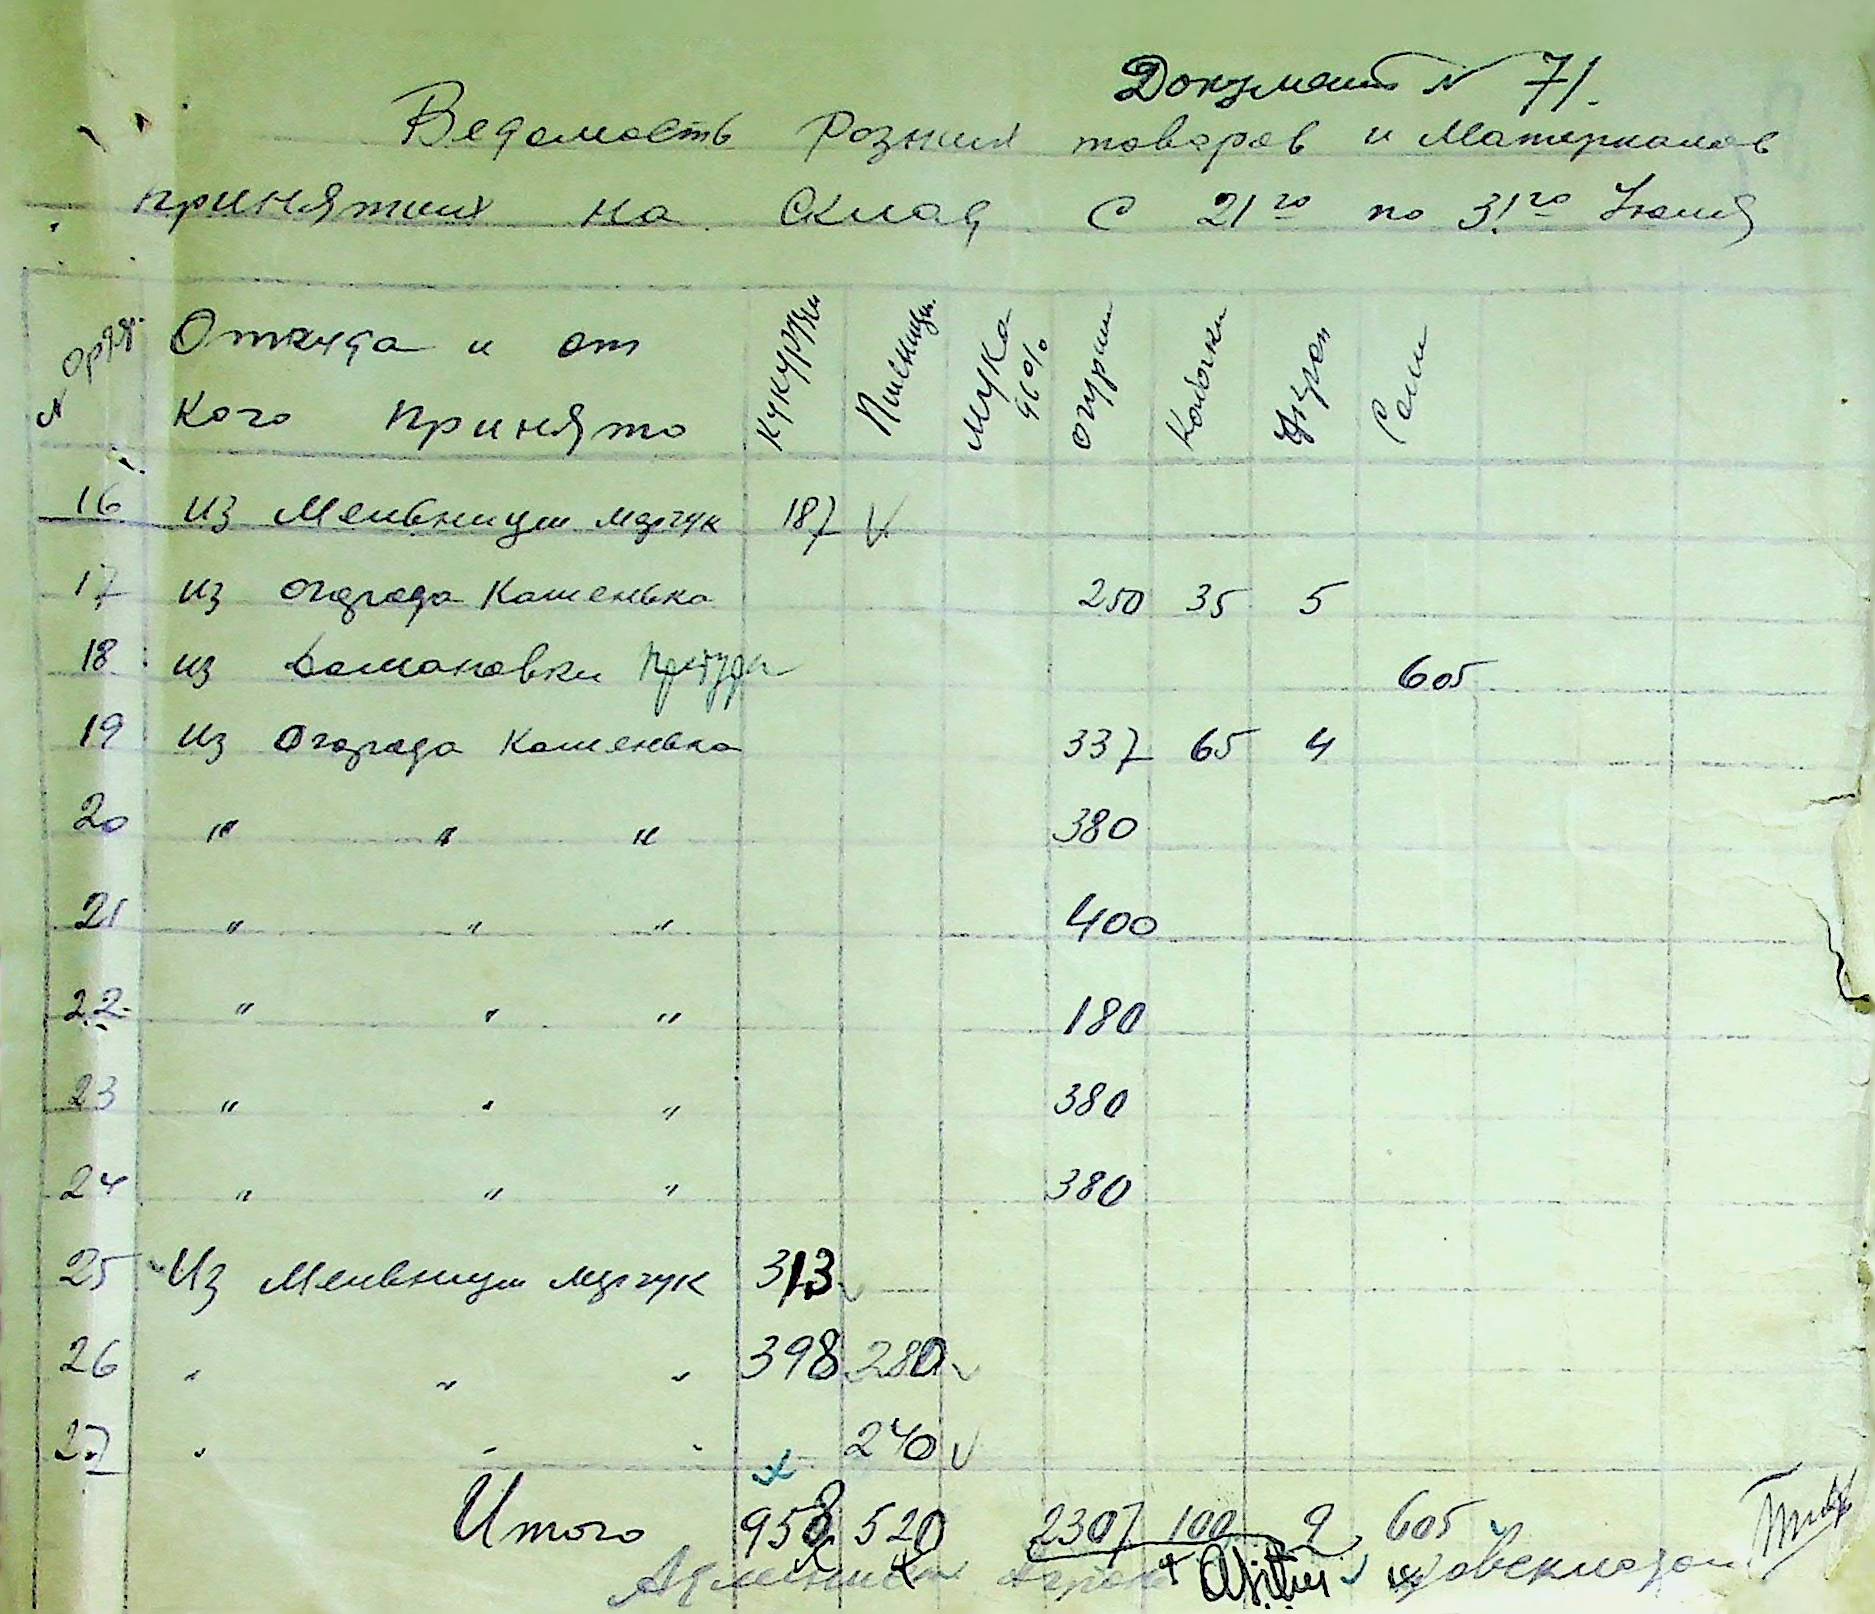 Документ N 71.
Ведомость Розних товаров и Материалов
принятих на Склад С 21го по 31го Июля
N Орд. Откуда и от кого принято Кукурузи Пшеници Мука 96% Огурци Кабачки Укроп Соли
16 из Мельници Марчук 187 V
17 из огорода Кашенько 250 35 5
18 из Домановки 605
19 из Огорода Кашенько 337 65 4
20 " " " 380
21 " " " 400
22 " " " 180
23 " " " 380
24 " " " 380
25 Из Мельници Марчук 313 V
26 " " " 398 280 V
27 " " " 240 V
Итого 958 520 2307 100 9 605
Агроном Завскладом